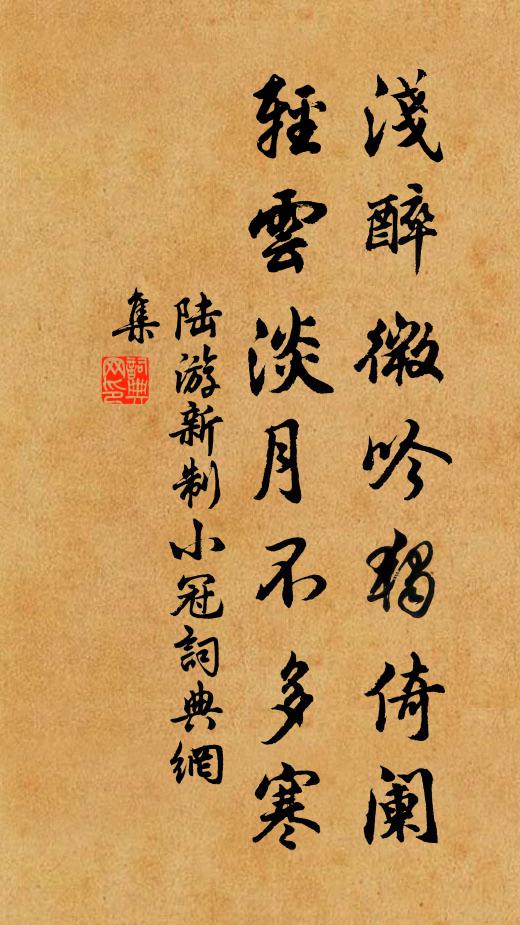 淺醉微吟獨倚闌
輕雲淡月不多寒
陆游新制小冠詞典網
集
詞典
网印